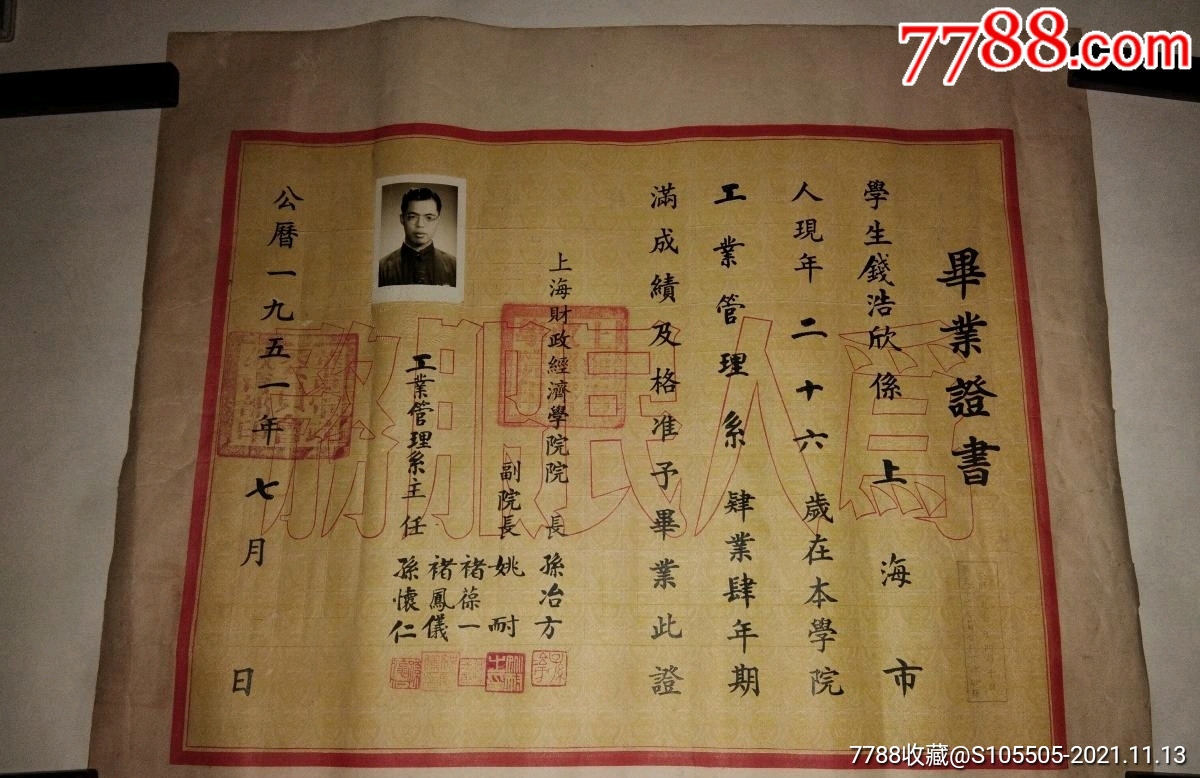 7788.com
畢業證書
學生錢浩欣係上海市
人現年二十六歲在本學院
工業管理系肄業肆年期
滿成績及格准予畢業此證
上海財政經濟學院院長孫冶方
副院長姚耐
褚葆一
褚鳳儀
工業管理系主任孫懷仁
公曆一九五一年七月 日
為人民服務
7788收藏@S105505-2021.11.13